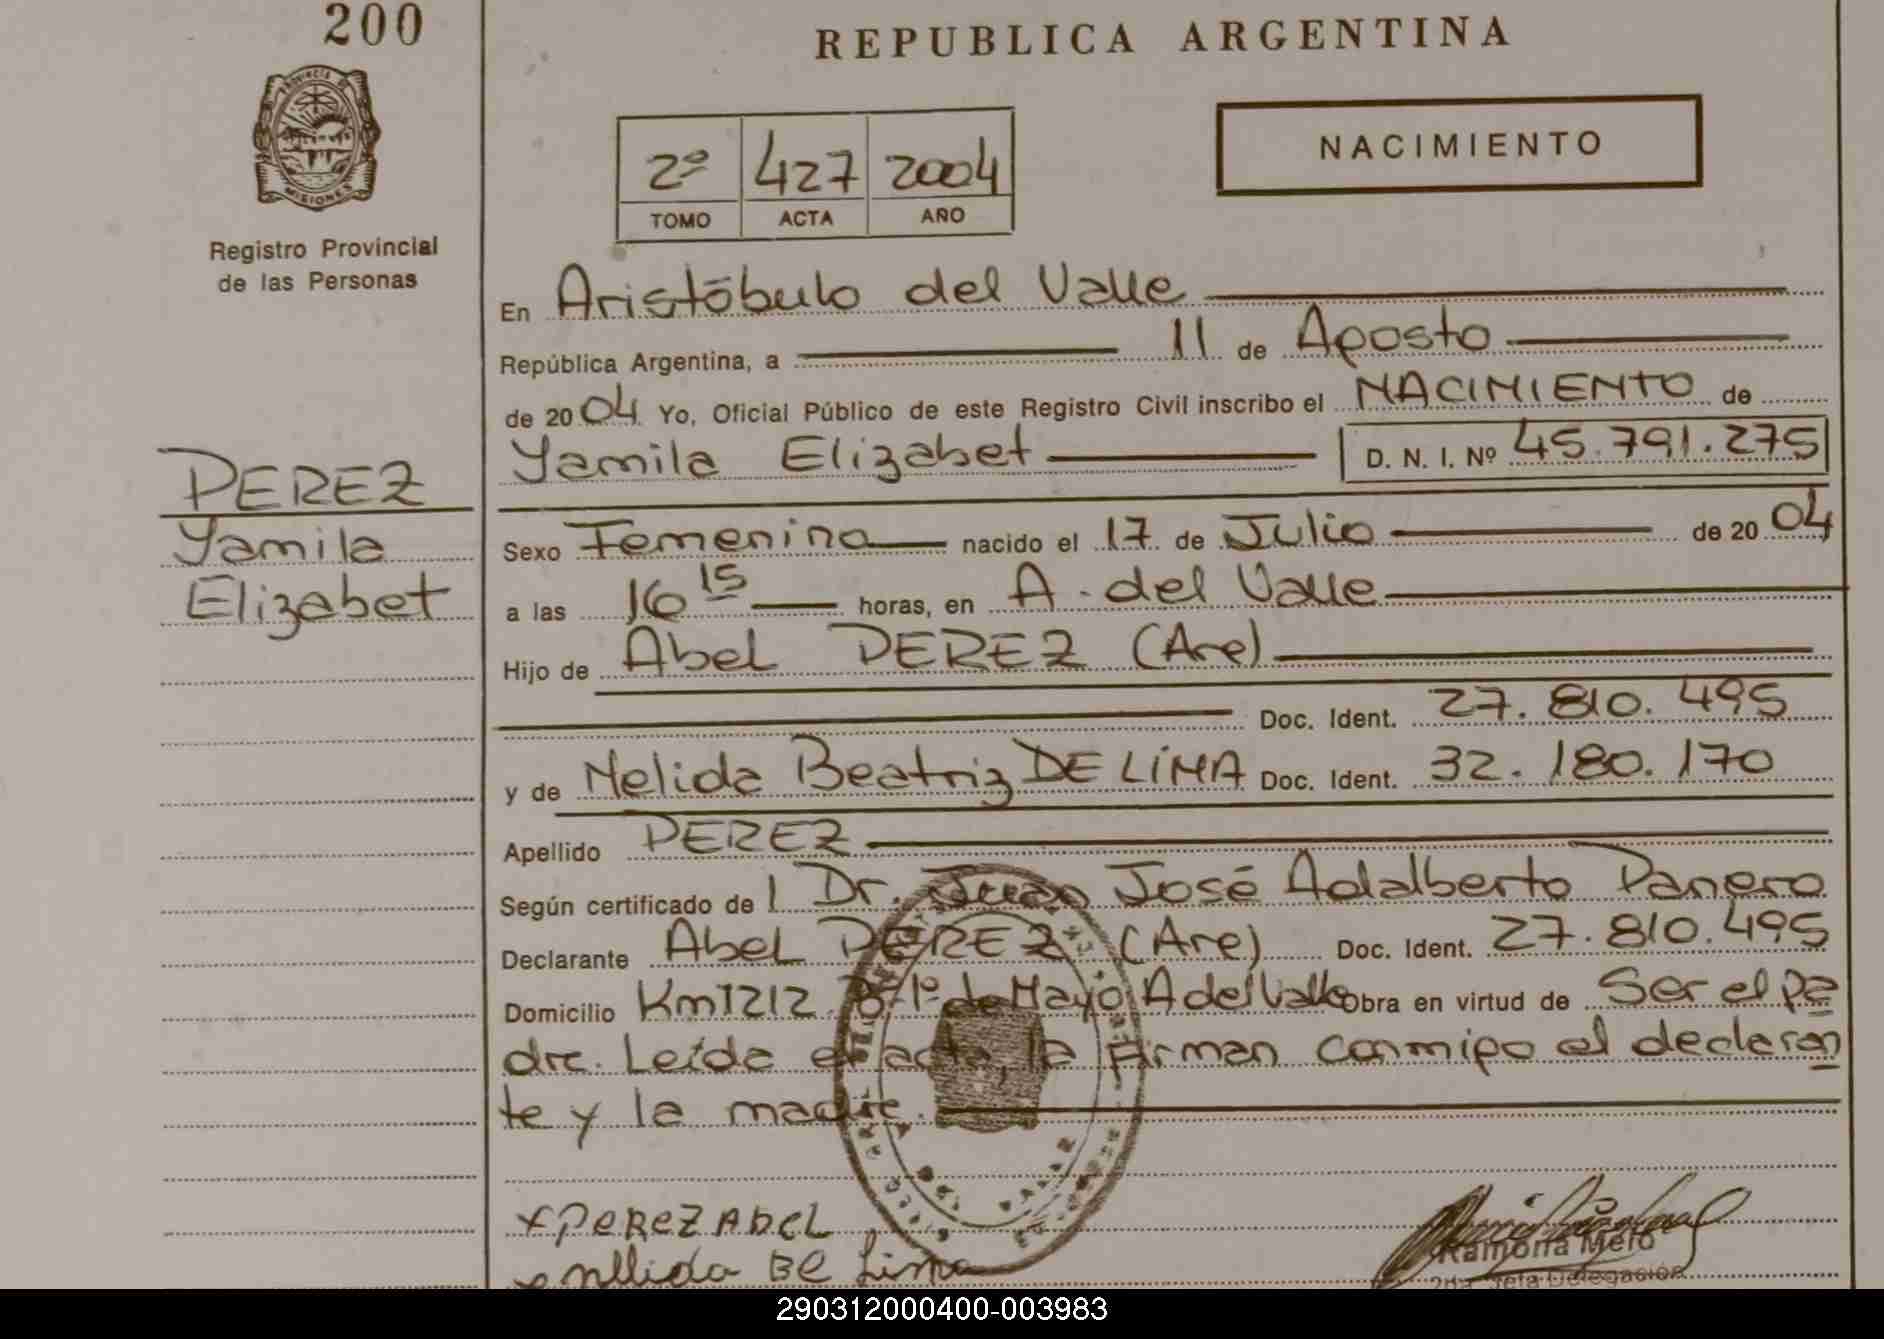 200
REPUBLICA ARGENTINA
PROVINCIA DE
MISIONES
Registro Provincial
de las Personas
2º 427 2004
TOMO ACTA AÑO
NACIMIENTO
En Aristóbulo del Valle
República Argentina, a 11 de Agosto
de 2004 Yo, Oficial Público de este Registro Civil inscribo el NACIMIENTO de
Yamila Elizabet D. N. I. Nº 45.791.275
PEREZ
Yamila
Elizabet
Sexo Femenino nacido el 17 de Julio de 2004
a las 16 15 horas, en A. del Valle
Hijo de Abel PEREZ (Are)
Doc. Ident. 27.810.495
y de Nelida Beatriz DE LIMA Doc. Ident. 32.180.170
Apellido PEREZ
Según certificado de l Dr. Juan José Adalberto Panero
Declarante Abel PEREZ (Are) Doc. Ident. 27.810.495
Domicilio Km 1212 Bº 1º de Mayo A del Valle Obra en virtud de Ser el pa
dre. Leída el acta, la firman conmigo el declaran
te y la madre.
x PEREZ AbeL
Lima
Ramona Melo
2da. Jefa Delegación
290312000400-003983